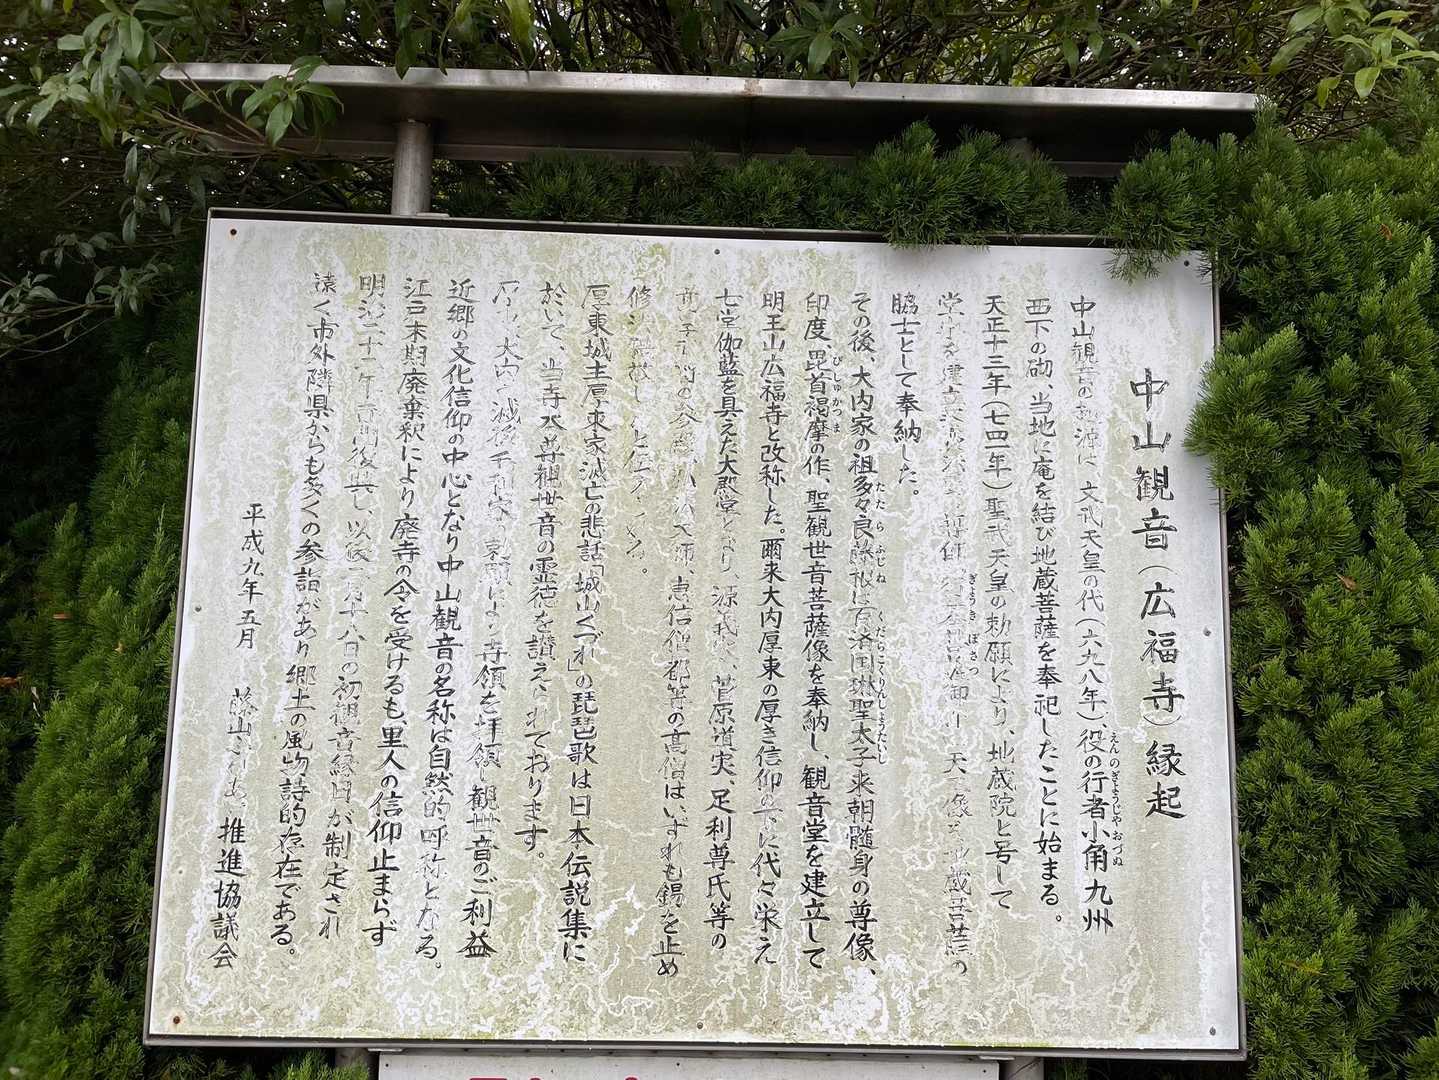 中山観音(広福寺)縁起
中山観音の起源は、文武天皇の代(六九八年)、役の行者小角九州
えんのぎょうじゃおづぬ
西下の砌、当地に庵を結び地蔵菩薩を奉祀したことに始まる。
天正十三年(七四一年)聖武天皇の勅願により、地蔵院と号して
堂宇を建立
ぎょうきぼさつ
天 像を地蔵菩薩の
脇士として奉納した。
その後、大内家の祖多々良藤根は百済国琳聖太子来朝髄身の尊像、
たたら ふじね くだらこくりんしょうたいし
印度、毘首褐摩の作、聖観世音菩薩像を奉納し、観音堂を建立して
びしゅかつま
明王山広福寺と改称した。爾来大内厚東の厚き信仰の下に代々栄え
七堂伽藍を具えた大殿堂となり、源義家、菅原道実、足利尊氏等の
の参 弘法大師、恵信僧都等の高僧はいずれも錫を止め
修 したと伝 る。
厚東城主厚東家滅亡の悲話「城山くづれ」の琵琶歌は日本伝説集に
於いて、当寺本尊観世音の霊徳を讃えられております。
大内 滅後 勅願により寺領を拝領し観世音のご利益
近郷の文化信仰の中心となり中山観音の名称は自然的呼称となる。
江戸末期廃棄釈により廃寺の令を受けるも、里人の信仰止まらず
明治二十 年 再興し、以後 月十八日の初観音縁日が制定され
遠く市外隣県からも多くの参詣があり郷土の風物詩的存在である。
平成九年五月 藤山 推進協議会